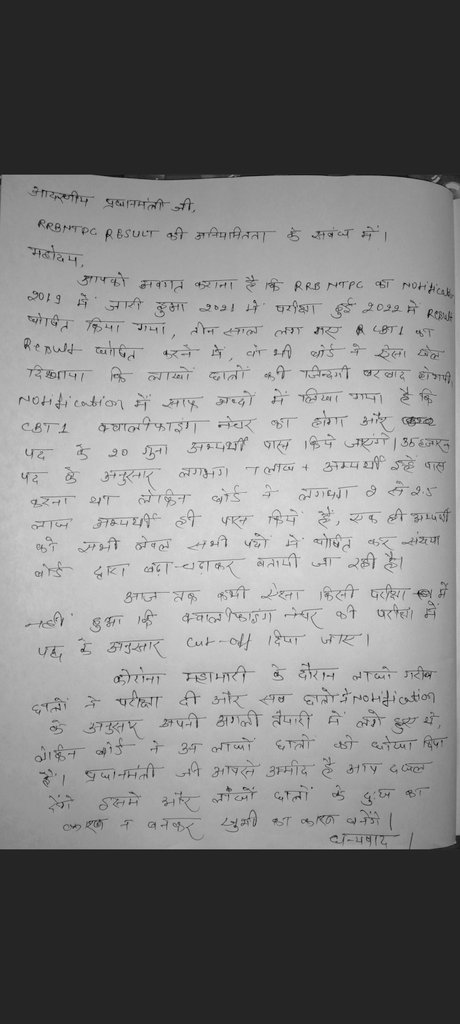 आदरणीय प्रधानमंत्री जी,
RRBNTPC RESULT की अनियमितता के संबंध में।
महोदय,
आपको अवगत कराना है कि RRB NTPC का Notification
2019 में जारी हुआ 2021 में परीक्षा हुई 2022 में Result
घोषित किया गया, तीन साल लग गए CBT1 का
Result घोषित करने में, वो भी बोर्ड ने ऐसा खेल
दिखाया कि लाखों छात्रों की जिन्दगी बरबाद होगयी
Notification में साफ शब्दों में लिखा गया है कि
CBT 1 क्वालीफाइंग नेचर का होगा और
पद के 20 गुना अभ्यर्थी पास किये जाएंगे। 35 हजार
पद के अनुसार लगभग 7 लाख + अभ्यर्थी इन्हें पास
करना था लेकिन बोर्ड ने लगभग 2 से 2.5
लाख अभ्यर्थी ही पास किये हैं, एक ही अभ्यर्थी
को सभी लेवल सभी पदों में घोषित कर संख्या
बोर्ड द्वारा बढ़ा-चढ़ाकर बतायी जा रही है।
आज तक कभी ऐसा किसी परीक्षा में
नहीं हुआ कि क्वालीफाइंग नेचर की परीक्षा में
पद के अनुसार cut-off दिया जाए।
कोरोना महामारी के दौरान लाखों गरीब
छात्रों ने परीक्षा दी और सब छात्रों ने Notification
के अनुसार अपनी अगली तैयारी में लगे हुए थे,
लेकिन बोर्ड ने उन लाखों छात्रों को धोखा दिया
है। प्रधानमंत्री जी आपसे उम्मीद है आप दखल
देंगे इसमें और लाखों छात्रों के दुःख का
कारण न बनकर खुशी का कारण बनेंगे।
धन्यवाद।